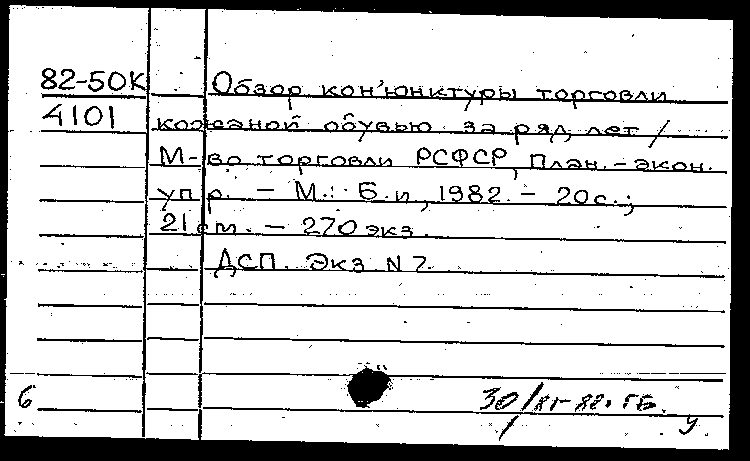 82-50К Обзор кон'юнктуры торговли
4101 кожаной обувью за ряд лет /
М-во торговли РСФСР, План.-экон.
упр. - М.: Б.и, 1982. - 20 с.;
21 см. - 270 экз.
ДСП. Экз N 7
6 30/ 82. ГБ.
у